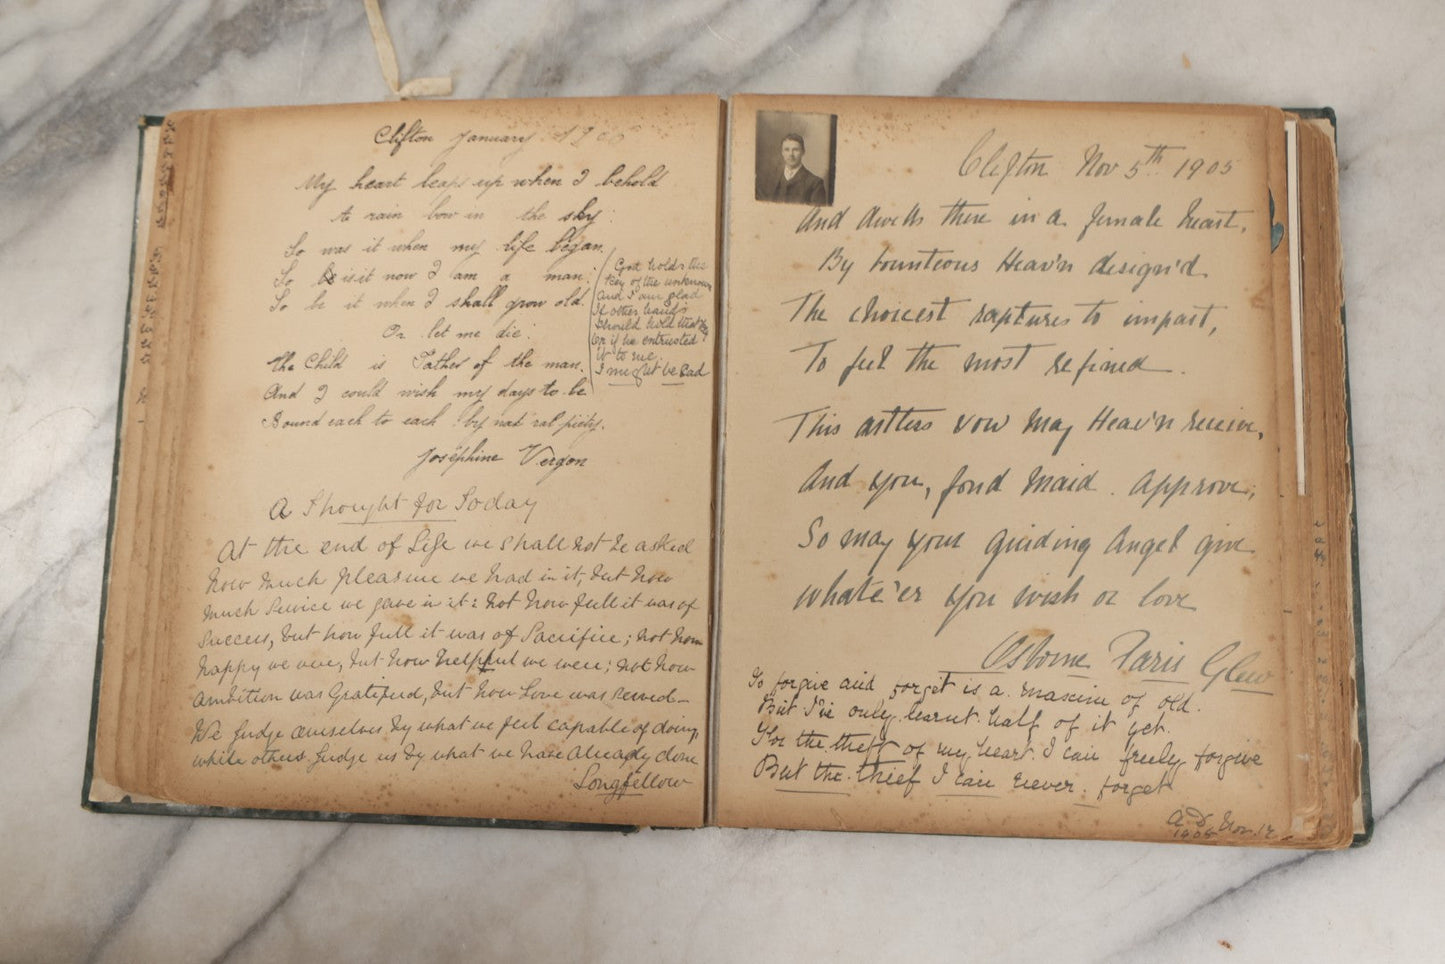 Clifton January 1906
My heart leaps up when I behold
A rain bow in the sky:
So was it when my life began,
So is it now I am a man;
So be it when I shall grow old,
Or let me die!
The Child is Father of the man.
And I could wish my days to be
Bound each to each by nat'ral piety.
Josephine Vergon
God holds the
Key of the unknown
And I am glad
If other hands
Should hold that key
Or if he entrusted
it to me.
I might be sad
A Thought for Today
At the end of Life we shall not be asked
how much pleasure we had in it, but how
much Service we gave in it: not how full it was of
Success, but how full it was of Sacrifice; not how
happy we were, but how helpful we were; not how
ambition was Gratified, but how Love was served—
We judge ourselves by what we feel capable of doing,
while others judge us by what we have already done
Longfellow
Clifton Nov 5th 1905
And dwells there in a female heart,
By bounteous Heav'n design'd
The choicest raptures to impart,
To feel the most refined.
This artless vow may Heav'n receive,
And you, fond Maid. Approve;
So may your guiding Angel give
whate'er you wish or love
Osborne Faris Glew
To forgive and forget is a maxim of old.
But I've only learnt half of it yet.
For the theft of my heart I can freely forgive
But the thief I can never forget
A.D. Nov. 12
1905